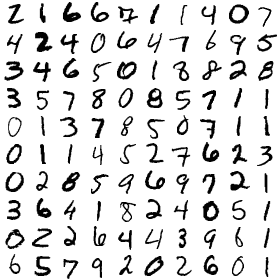 2 1 6 6 7 1 1 4 0 7
4 2 4 0 6 4 7 6 9 5
3 4 6 5 0 1 8 8 2 8
3 5 7 8 0 8 5 7 1 1
0 1 3 7 8 5 0 7 1 1
0 1 1 4 5 2 7 6 2 3
0 2 8 5 9 6 9 7 2 1
3 6 4 1 8 2 4 0 5 1
0 2 2 6 4 4 3 9 6 1
6 5 7 9 2 0 2 6 0 1